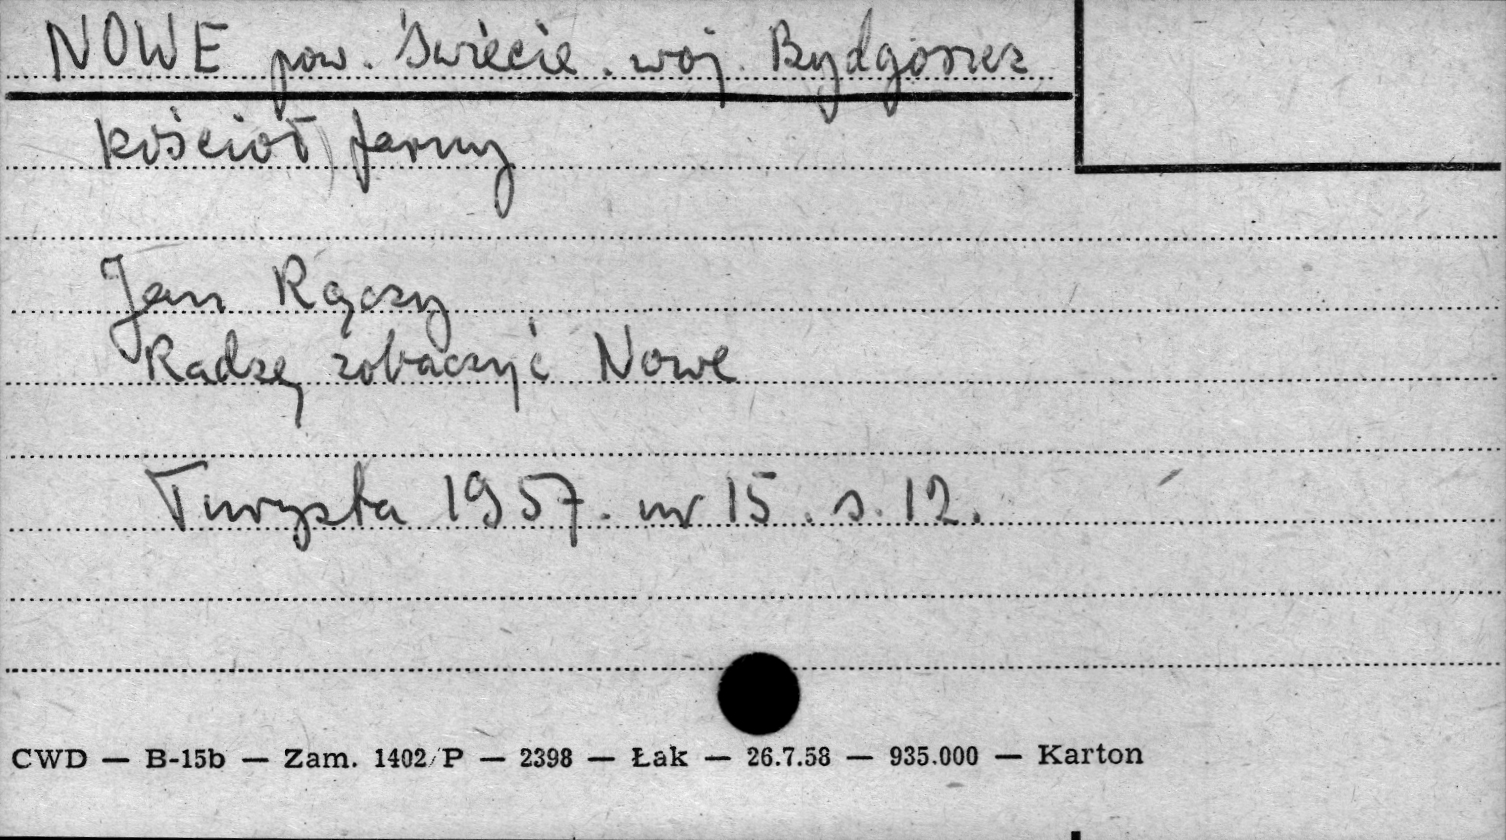 NOWE pow. Świecie. woj. Bydgoszcz
kościół farny
Jan Rączy
Radzę zobaczyć Nowe
Turysta 1957. nr 15. s. 12.
CWD — B-15b — Zam. 1402/P — 2398 — Łak — 26.7.58 — 935.000 — Karton